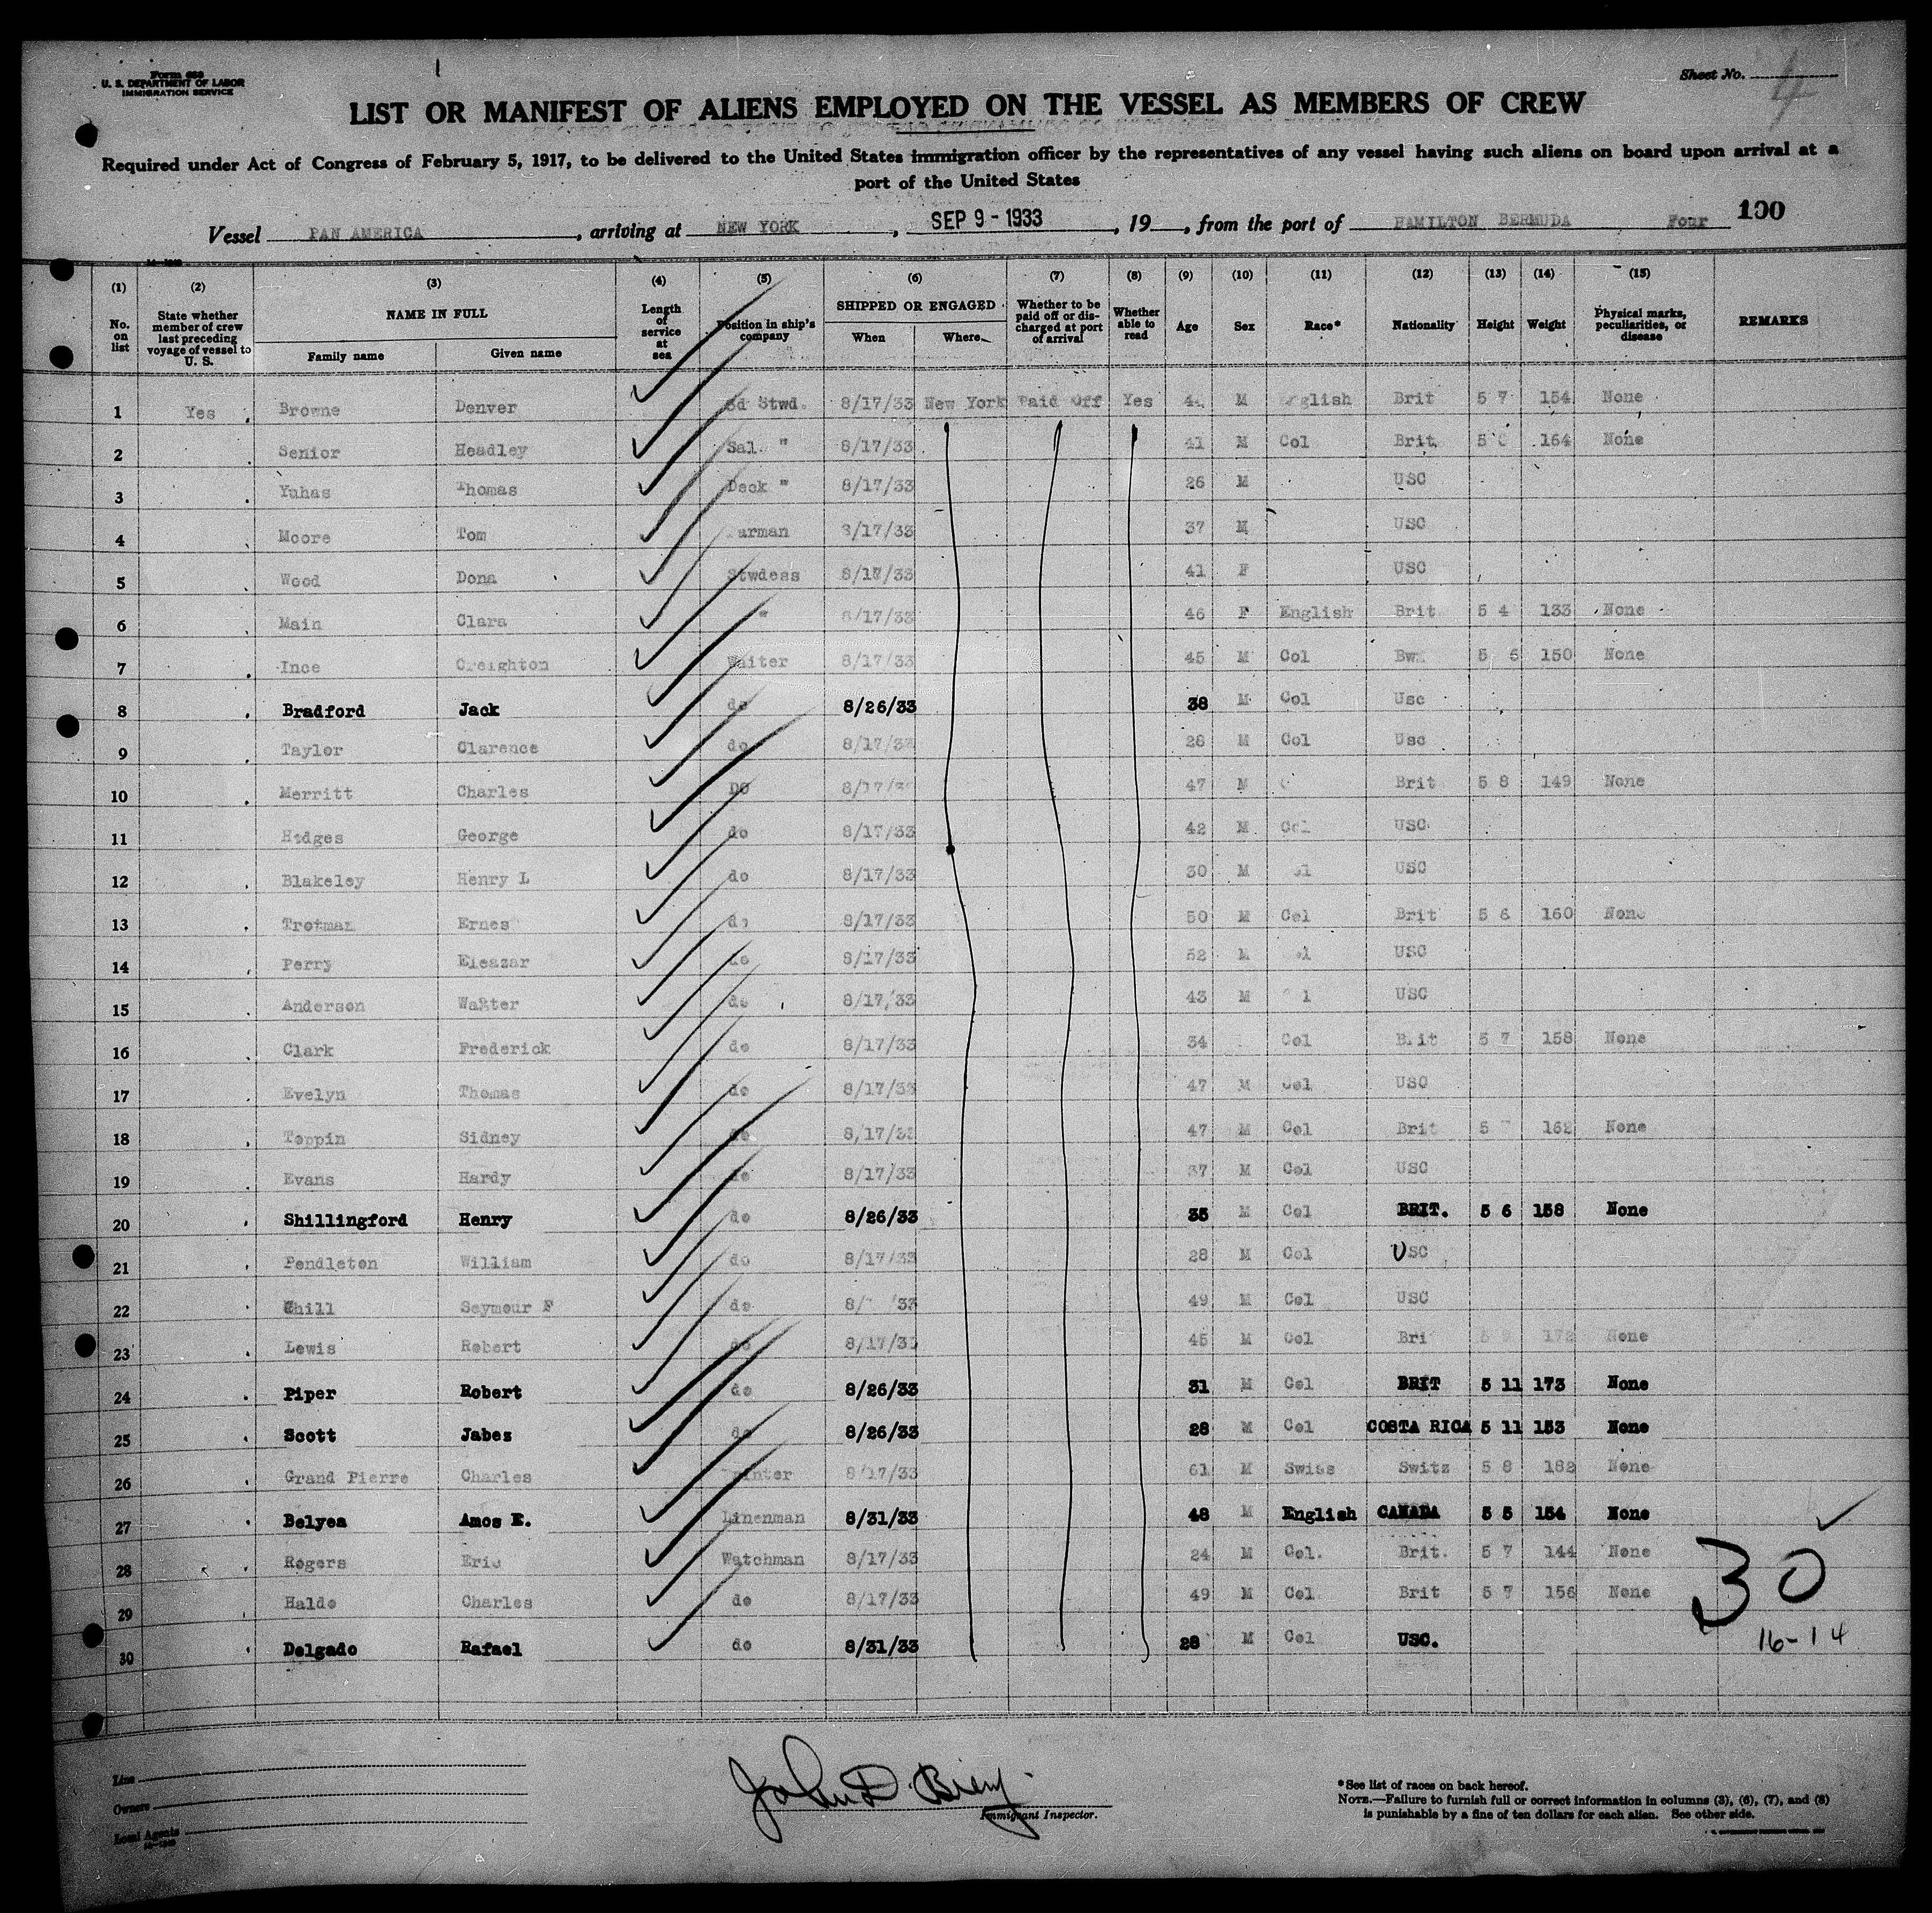 Form 689
U. S. DEPARTMENT OF LABOR
IMMIGRATION SERVICE
Sheet No. 4
LIST OR MANIFEST OF ALIENS EMPLOYED ON THE VESSEL AS MEMBERS OF CREW
Required under Act of Congress of February 5, 1917, to be delivered to the United States immigration officer by the representatives of any vessel having such aliens on board upon arrival at a
port of the United States
Vessel PAN AMERICA, arriving at NEW YORK, SEP 9 - 1933, 19, from the port of HAMILTON BERMUDA Four 100
(1) No. on list (2) State whether member of crew last preceding voyage of vessel to U. S. (3) NAME IN FULL Family name Given name (4) Length of service at sea (5) Position in ship's company (6) SHIPPED OR ENGAGED When Where (7) Whether to be paid off or discharged at port of arrival (8) Whether able to read (9) Age (10) Sex (11) Race* (12) Nationality (13) Height (14) Weight (15) Physical marks, peculiarities, or disease REMARKS
1 Yes Browne Denver 3d Stwd. 8/17/33 New York Paid Off Yes M English Brit 5 7 154 None
2 Senior Headley Sal. " 8/17/33 41 M Col Brit. 5 164 None
3 Yuhas Thomas Deck " 8/17/33 26 M USC
4 Moore Tom arman 8/17/33 37 M USC
5 Wood Dona Stwdess 8/17/33 41 F USC
6 Main Clara " 8/17/33 46 F English Brit 5 4 133 None
7 Ince Creighton Waiter 8/17/33 45 M Col Bw 5 6 150 None
8 Bradford Jack do 8/26/33 38 M Col Usc
9 Taylor Clarence do 8/17/33 28 M Col Usc
10 Merritt Charles DO 8/17/33 47 M Brit 5 8 149 None
11 Hodges George do 8/17/33 42 M Col USC
12 Blakeley Henry L do 8/17/33 30 M USC
13 Trotman Ernes do 8/17/33 50 M Col Brit 5 6 160 None
14 Perry Eleazar do 8/17/33 52 M USC
15 Anderson Walter do 8/17/33 43 M USC
16 Clark Frederick do 8/17/33 34 Col Brit 5 7 158 None
17 Evelyn Thomas do 8/17/33 47 M Col USC
18 Toppin Sidney do 8/17/33 47 M Col Brit 5 162 None
19 Evans Hardy do 8/17/33 37 M Col USC
20 Shillingford Henry do 8/26/33 35 M Col BRIT. 5 6 158 None
21 Pendleton William do 8/17/33 28 M Col USC
22 Seymour F do 49 M Col USC
23 Lewis Robert do 8/17/33 45 M Col Bri 172 None
24 Piper Robert do 8/26/33 31 M Col BRIT 5 11 173 None
25 Scott Jabez do 8/26/33 28 M Col COSTA RICA 5 11 153 None
26 Grand Pierre Charles 8/17/33 61 M Swiss Switz 5 8 182 None
27 Belyea Amos E. Linenman 8/31/33 48 M English CANADA 5 5 154 None
28 Rogers Eric Watchman 8/17/33 24 M Col. Brit. 5 7 144 None
29 Halde Charles do 8/17/33 49 M Col Brit 5 7 156 None
30 Delgado Rafael do 8/31/33 28 M Col USC.
30
16-14
Line
Owners
Local Agents
John D. Bieny
Immigrant Inspector.
*See list of races on back hereof.
NOTE.—Failure to furnish full or correct information in columns (3), (6), (7), and (8)
is punishable by a fine of ten dollars for each alien. See other side.